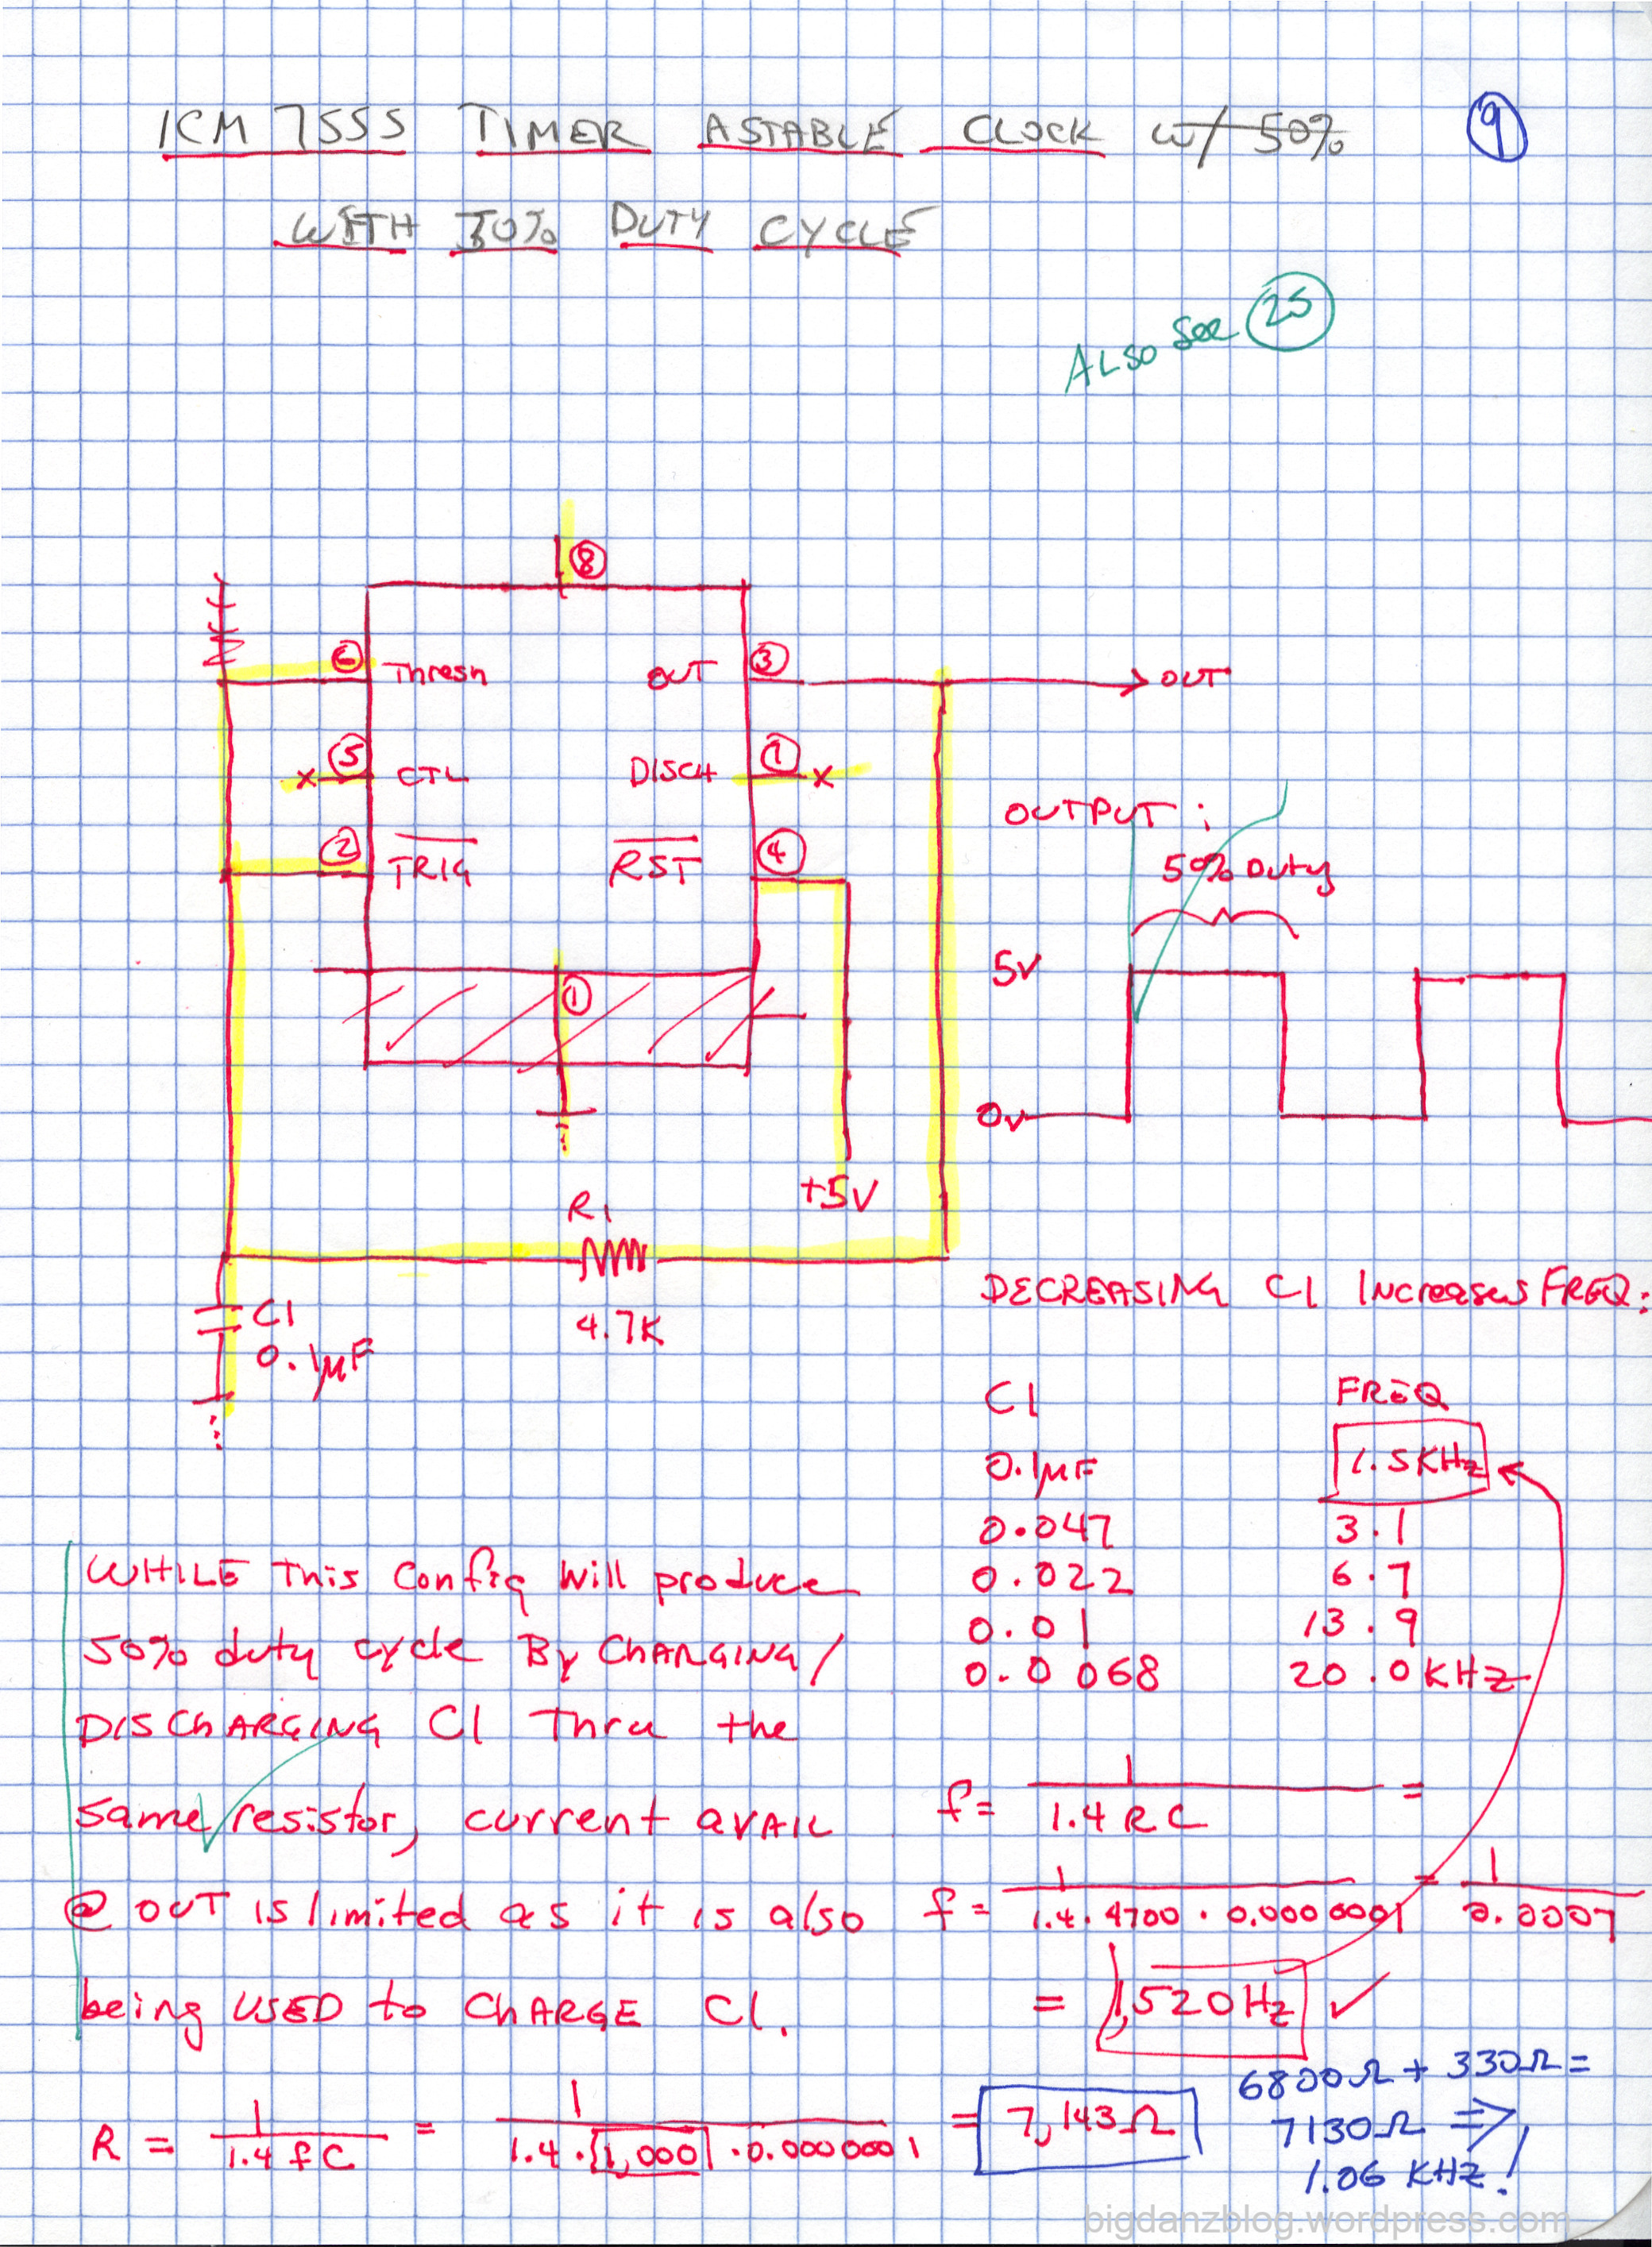 ICM 7555 TIMER ASTABLE CLOCK W/ 50%
9
WITH 50% DUTY CYCLE
ALSO See 25
8
6 Thresh OUT 3 OUT
5 CTL DISCH 7
X X
2 TRIG RST 4
1
+5V
OUTPUT :
50% Duty
5V
0V
R1
4.7K
C1
0.1µF
DECREASING C1 Increases FREQ:
C1 FREQ
0.1µF 1.5KHz
0.047 3.1
0.022 6.7
0.01 13.9
0.0068 20.0KHz
WHILE This Config Will produce
50% duty cycle By CHARGING/
DISCHARGING C1 Thru the
same resistor, current avail
@ OUT is limited as it is also
being USED to CHARGE C1.
f = 1 / 1.4 R C =
f = 1 / 1.4 · 4700 · 0.0000001 = 1 / 0.0007
= 1,520Hz ✓
R = 1 / 1.4 f C = 1 / 1.4 · 1,000 · 0.0000001 = 7,143Ω
6800Ω + 330Ω =
7130Ω =>
1.06 KHz!
bigdanzblog.wordpress.com